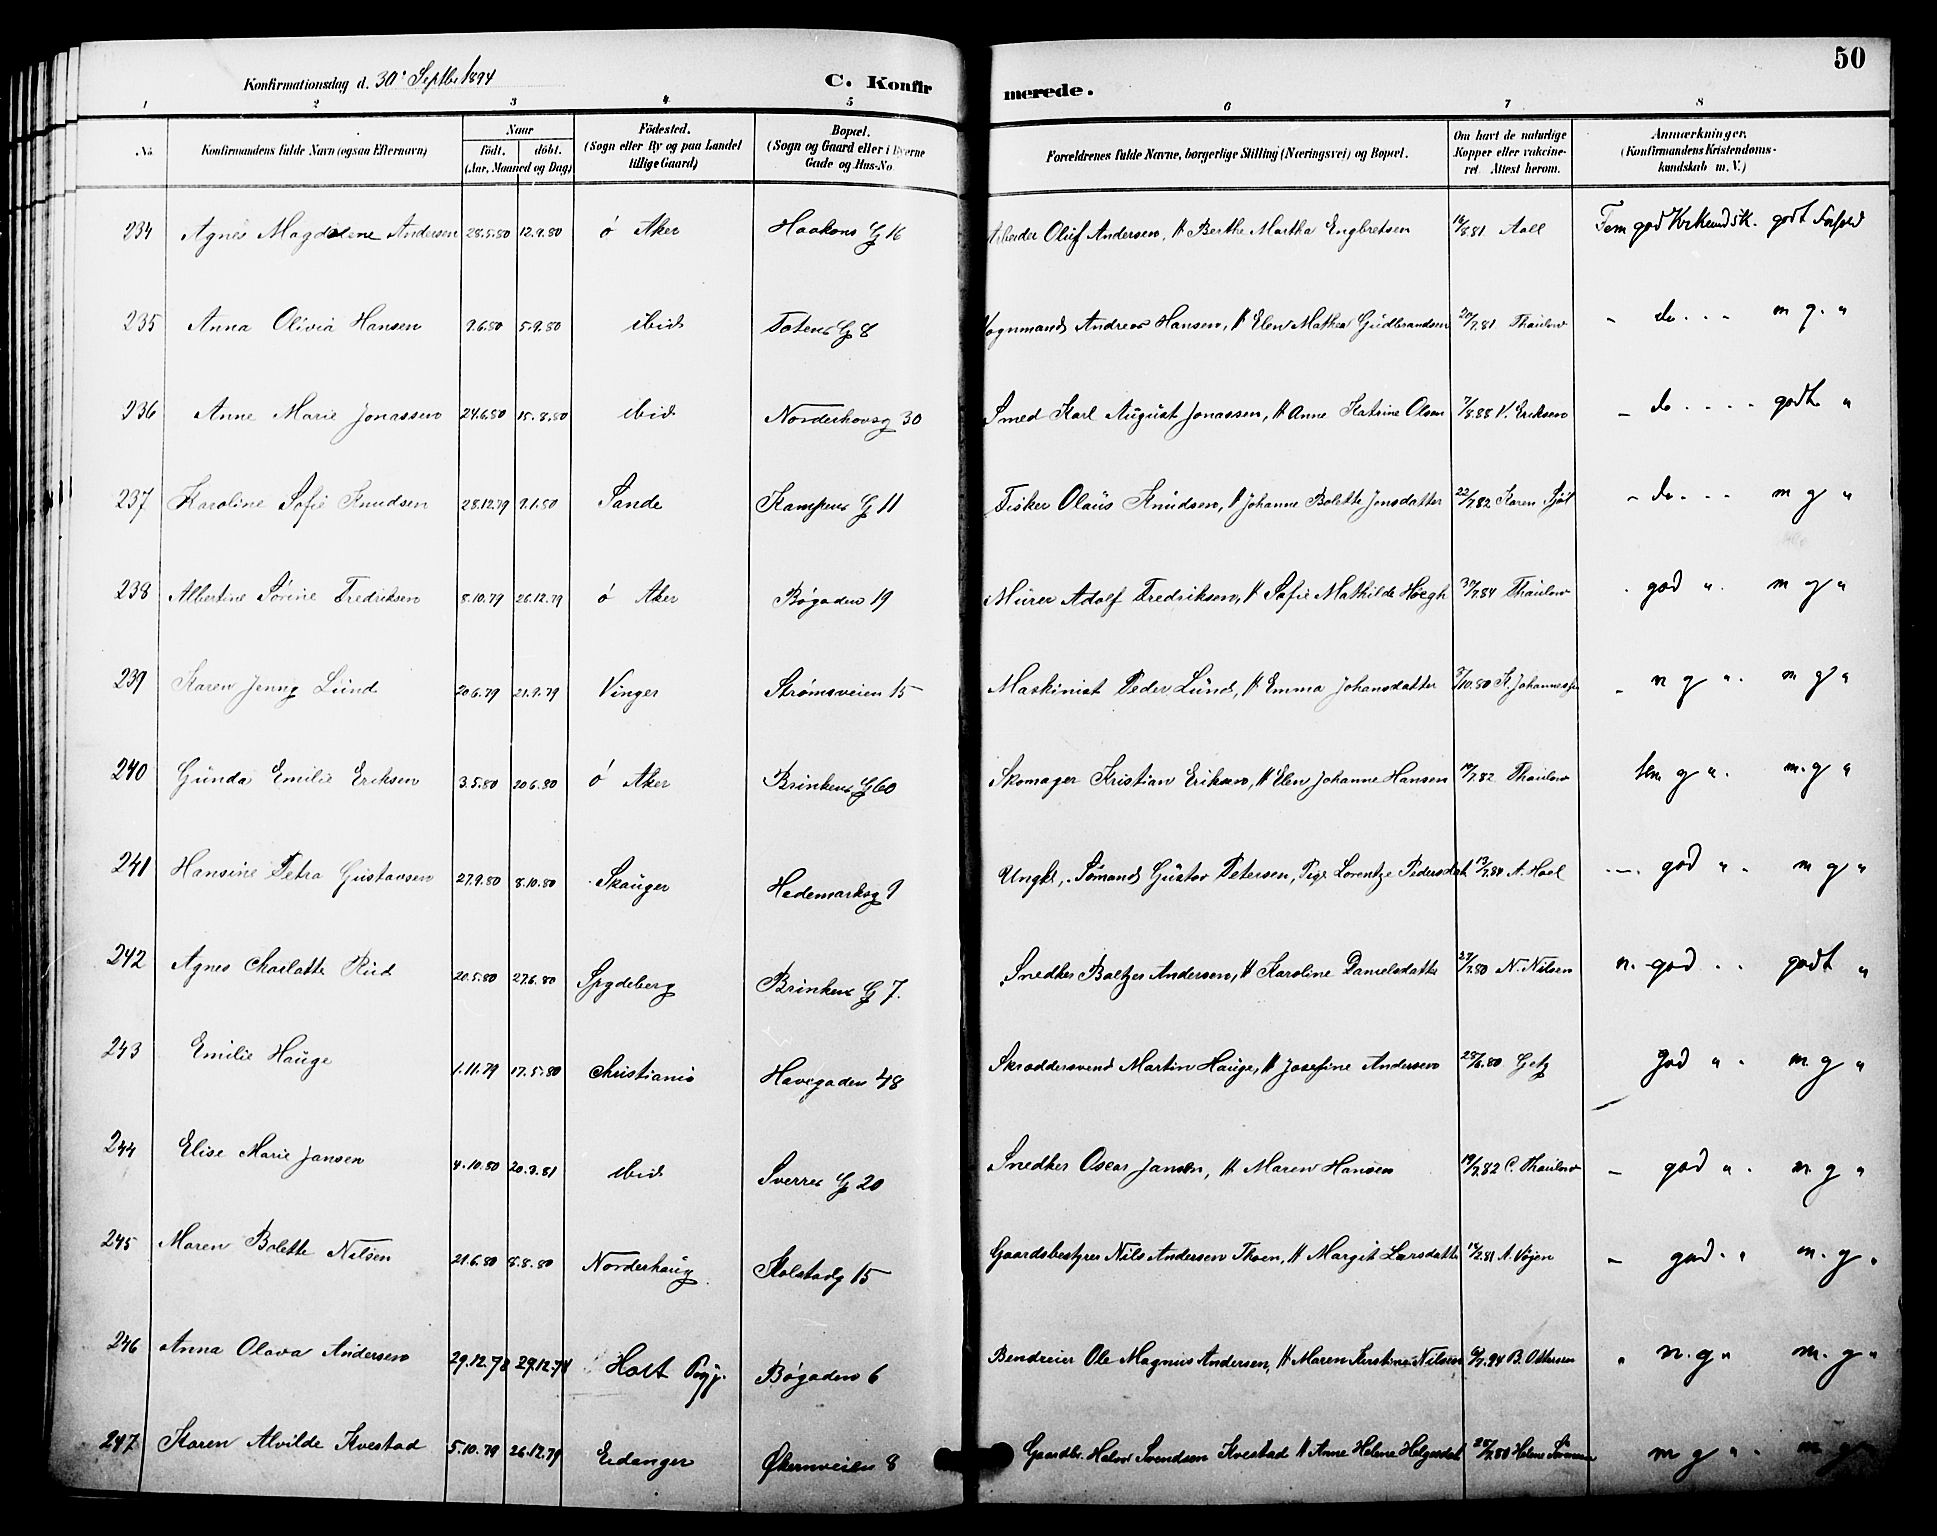 50
Konfirmationsdag d. 30' Septbr 1894
C. Konfirmerede.
1 2 3 4 5 6 7 8
No. Konfirmandens fulde Navn (ogsaa Efternavn) Naar Födt. döbt. (Aar, Maaned og Dag) Födested. (Sogn eller By og paa Landet tillige Gaard) Bopæl. (Sogn og Gaard eller i Byerne Gade og Hus-No Forældrenes fulde Navne, borgerlige Stilling (Næringsvei) og Bopæl. Om havt de naturlige Kopper eller vakcineret. Attest herom. Anmærkninger. (Konfirmandens Kristendomskundskab m. V.)
234 Agnes Magdalene Andersen 28.5.80 12.9.80 ö Aker Haakons G 16 Arbeider Oluf Andersen, H Berthe Martha Engbretsen 16/8.81 Aall Tem god Krkundsk. godt Forhold
235 Anna Olivia Hansen 9.6.80 5.9.80 ibid Totens G 8 Vognmand Andreas Hansen, H Elen Mathea Gudbrandsen 20/7.81 Thaulow - do . . . m g. "
236 Anne Marie Jonassen 24.6.80 15.8.80 ibid Norderhovsg 30 Smed Karl August Jonassen, H Anne Katrine Olsen 7/8.88 V. Eriksen - do . . . . godt "
237 Karoline Sofie Knudsen 28.12.79 9.1.80 Sande Kampens G 11 Fisker Olaus Knudsen, H Johanne Bolette Jonsdatter 22/7.82 Karen - do . . . m g "
238 Albertine Sörine Fredriksen 8.10.79 26.12.79 ö Aker Bøgaden 19 Murer Adolf Fredriksen, H Sofie Mathilde Höegh 30/7.84 Thaulow . god ". m g "
239 Karen Jenny Lund 20.6.79 21.9.79 Vinger Strømsveien 15 Maskinist Peder Lund, H Emma Johansdatter 3/10.80 K. - n g ". m g "
240 Gunda Emilie Eriksen 3.5.80 20.6.80 ö Aker Brinkens G 60 Skomager Kristian Eriksen, H Elen Johanne Hansen 19/7.82 Thaulow tem g ". m. g "
241 Hansine Petra Gustavsen 27.9.80 8.10.80 Skauger Hedemarksg 9 Ungkl, Sømand Gustav Petersen, Pige Lorentze Pedersdat 13/7.84 A. Hoel - . god ". m g "
242 Agnes Charlotte Rud 20.5.80 27.6.80 Spydeberg Brinkens G 7. Snedker Baltzer Andersen, H Karoline Danielsdatter 23/7.80 N. Nilsen n. god . . godt "
243 Emilie Hauge 1.11.79 17.5.80 Christiania Havegaden 48 Skræddersvend Martin Hauge, H Josefine Andersen 28/6.80 Getz god ". m g "
244 Elise Marie Jansen 4.10.80 20.9.81 ibid Sverres G 20 Snedker Oscar Jansen, H Maren Hansen 19/7.82 C. Thaulow - god ". m g "
245 Maren Bolette Nilsen 21.6.80 8.8.80 Norderhaug Kolstadg 15 Gaardsbestyrer Nils Andersen Thoen, H Margit Larsdatter 14/7.81 A. Vøjen - god. " m. g "
246 Anna Olava Andersen 29.12.78 29.12.78 Holt Bøgaden 6 Bendreier Ole Magnus Andersen, H Maren Kirstine Nilsen 6/7.94 B. Ottersen " n. g " m. g "
247 Karen Alvilde Kvestad 5.10.79 26.12.79 Eidanger Økernveien 8 Gaardbr. Halvor Svendsen Kvestad H Anne Helene Helgesdat 28/7.80 Helene m g ". m g